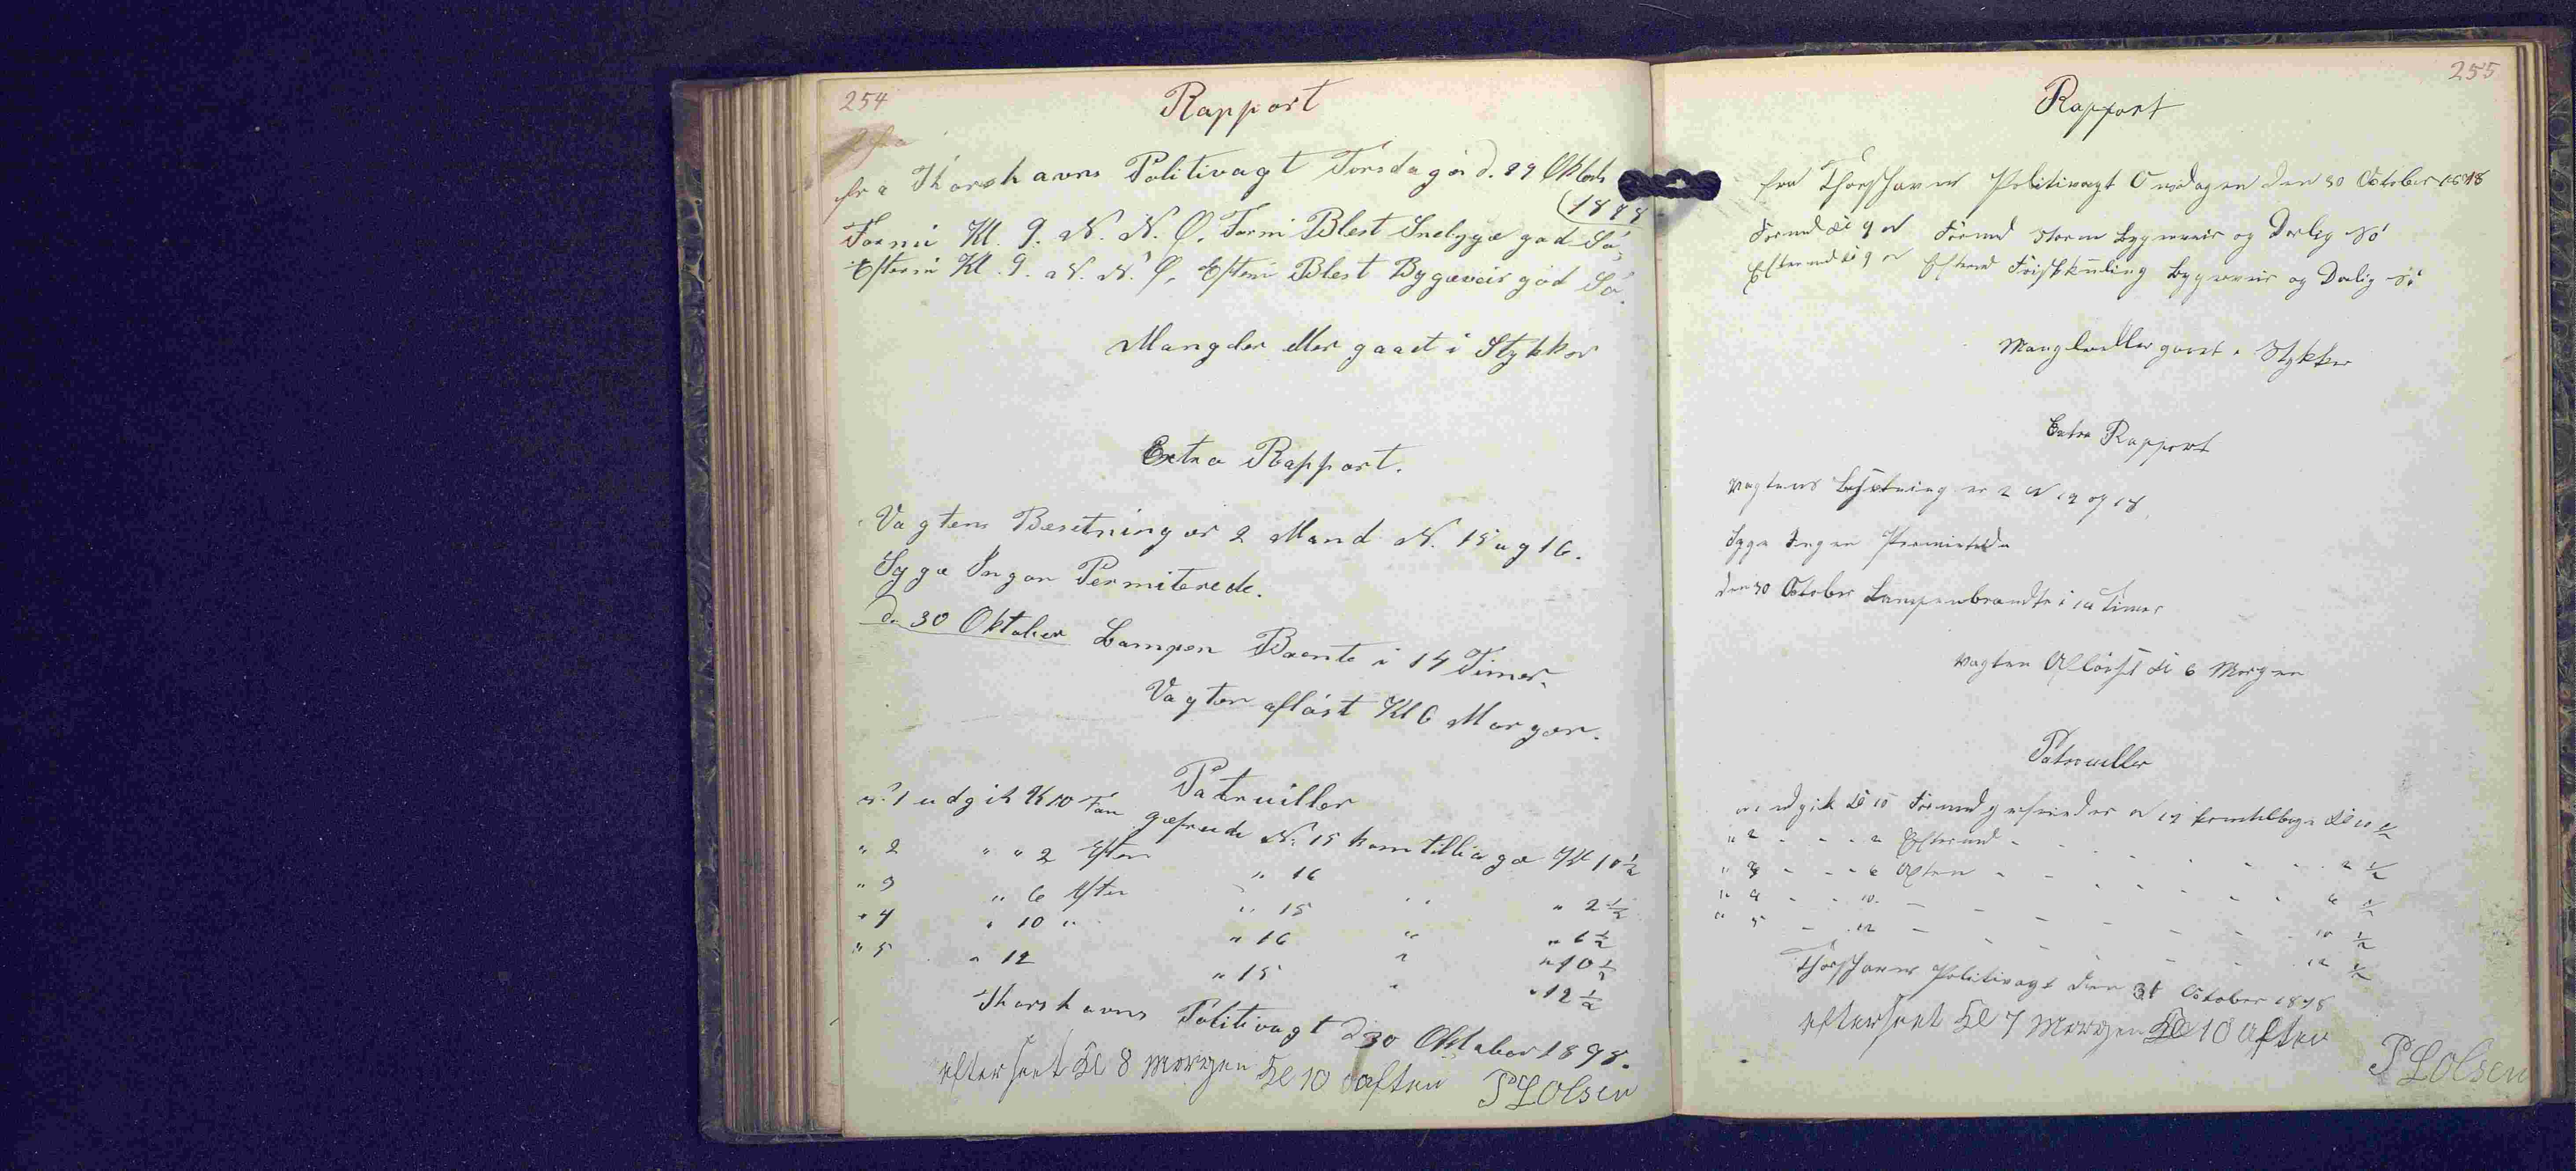 254
Rapport
fra Thorshavns Politivagt Tirsdagen d. 29 Oktob
1878
Formi Kl. 9. N. N. Ø. Formi Blest Snebyge god Sö,
Eftermi Kl. 9. N. N. Ø, Eftemi Blest Bygeveir god Sö.
Mangder eller gaaet i Stykker
Extra Rapport.
Vagtens Besetning er 2 Mand N. 15 og 16.
Syge Ingen Permiterede.
Dn 30 Oktober Lampen Brente i 14 Timer.
Vagten aflöst Kl 6 Morgen.
Patruiller
N: 1 udgik Kl 10 For gefreide N: 15 kom tilbage Kl 10 ½
" 2 " " 2 Efter " 16 " " 2 ½
" 3 " 6 After " 15 " " 6 ½
" 4 " 10 " " 16 " " 10 ½
" 5 " 12 " 15 " " 12 ½
Thorshavns Politivagt D 30 Oktober 1878.
efterseet Kl 8 Morgen Kl 10 aften PLOlsen
255
Rapport
fra Thorshavns Politivagt Onsdagen den 30 October 1878
Formd Kl 9 N Formd Storm bygeveir og Darlig Sö
Eftermd Kl 9 N Eftermd Friskkuling bygeveir og Darlig Sö
Mangler eller gaaet i Stykker
Extra Rapport
Vagtens besætning er 2 N 17 og 18
Syge Ingen Permiterede
den 30 October Lampen brændte i 14 Timer
Vagten Aflöst Kl 6 Morgen
Patrouiller
N 1 udgik Kl 10 Formd gefreider N 17 kom tilbage Kl 10 ½
" 2 - - - 2 Eftermd - - - - - 2 ½
" 3 - - - 6 Aften - - - - - 6 ½
" 4 - - 10 - - - - - 10 ½
" 5 - 12 - - - - - 12 ½
Thorshavns Politivagt den 31 October 1878
efterseet Kl 7 Morgen Kl 10 Aften
PLOlsen